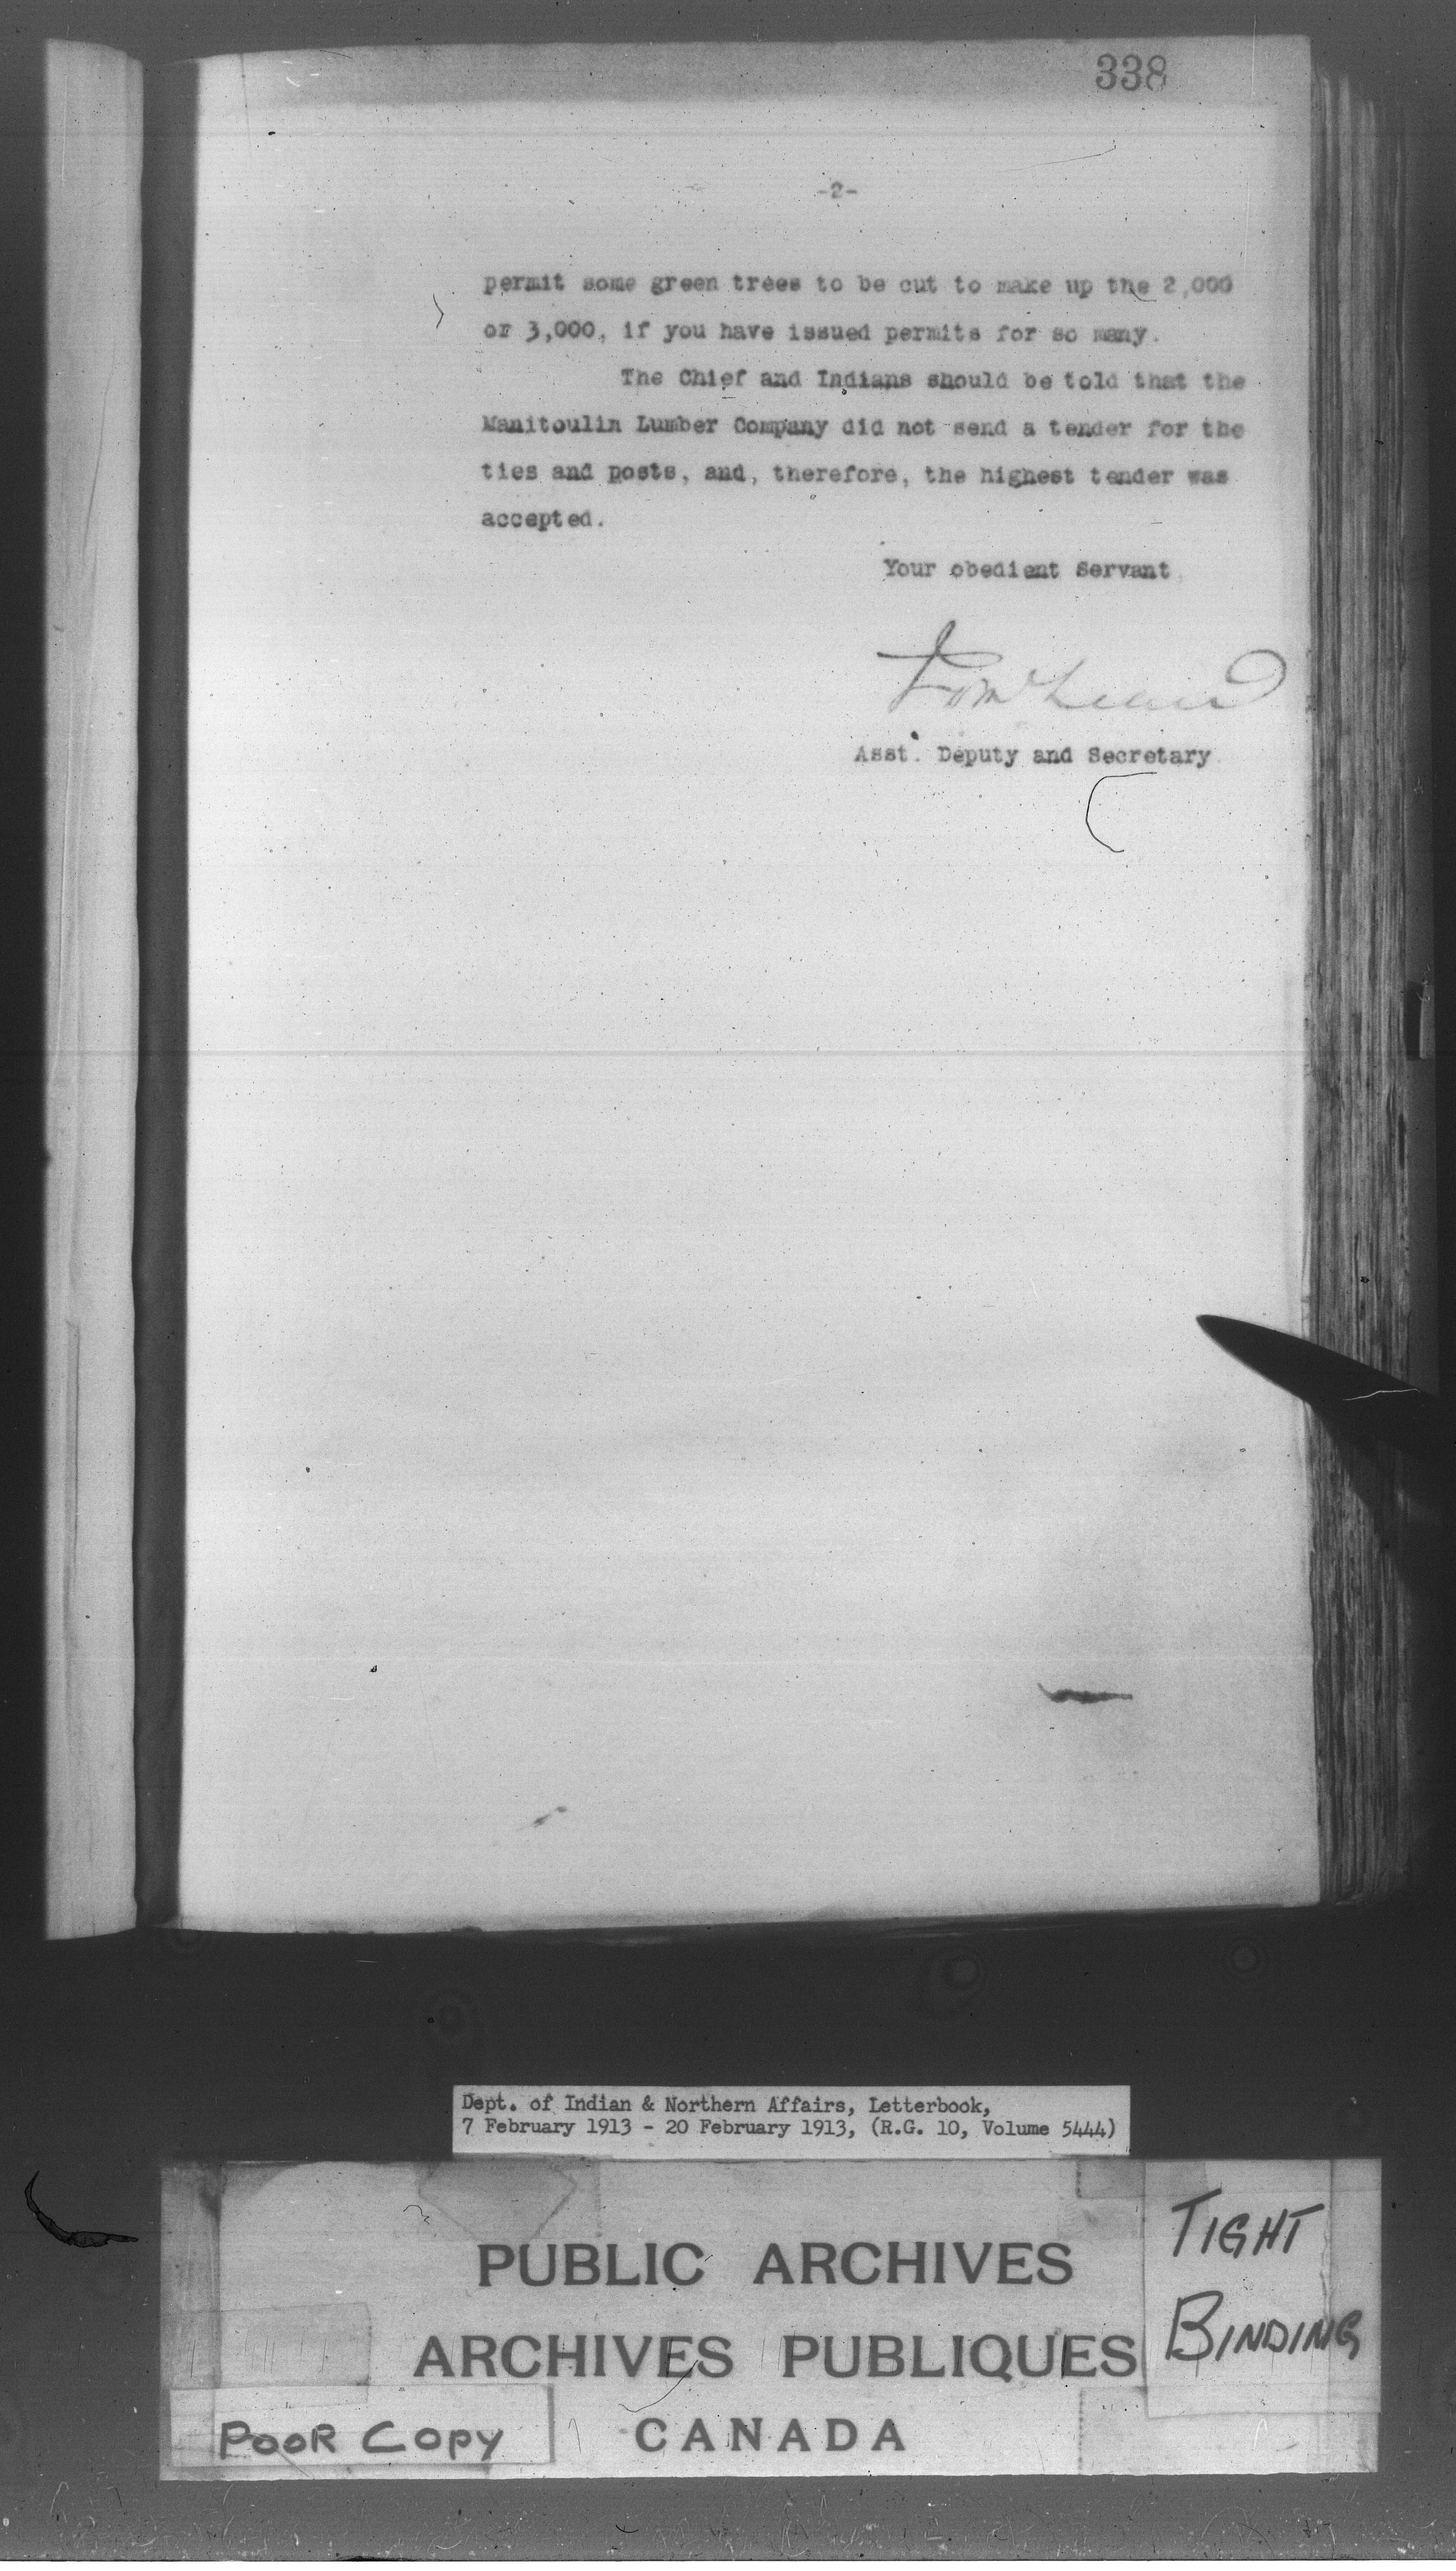 338
-2-
permit some green trees to be cut to make up the 2,000
or 3,000, if you have issued permits for so many.
The Chief and Indians should be told that the
Manitoulin Lumber Company did not send a tender for the
ties and posts, and, therefore, the highest tender was
accepted.
Your obedient Servant
Asst. Deputy and Secretary.
Dept. of Indian & Northern Affairs, Letterbook,
7 February 1913 - 20 February 1913, (R.G. 10, Volume 5444)
PUBLIC ARCHIVES
ARCHIVES PUBLIQUES
CANADA
TIGHT
BINDING
POOR COPY